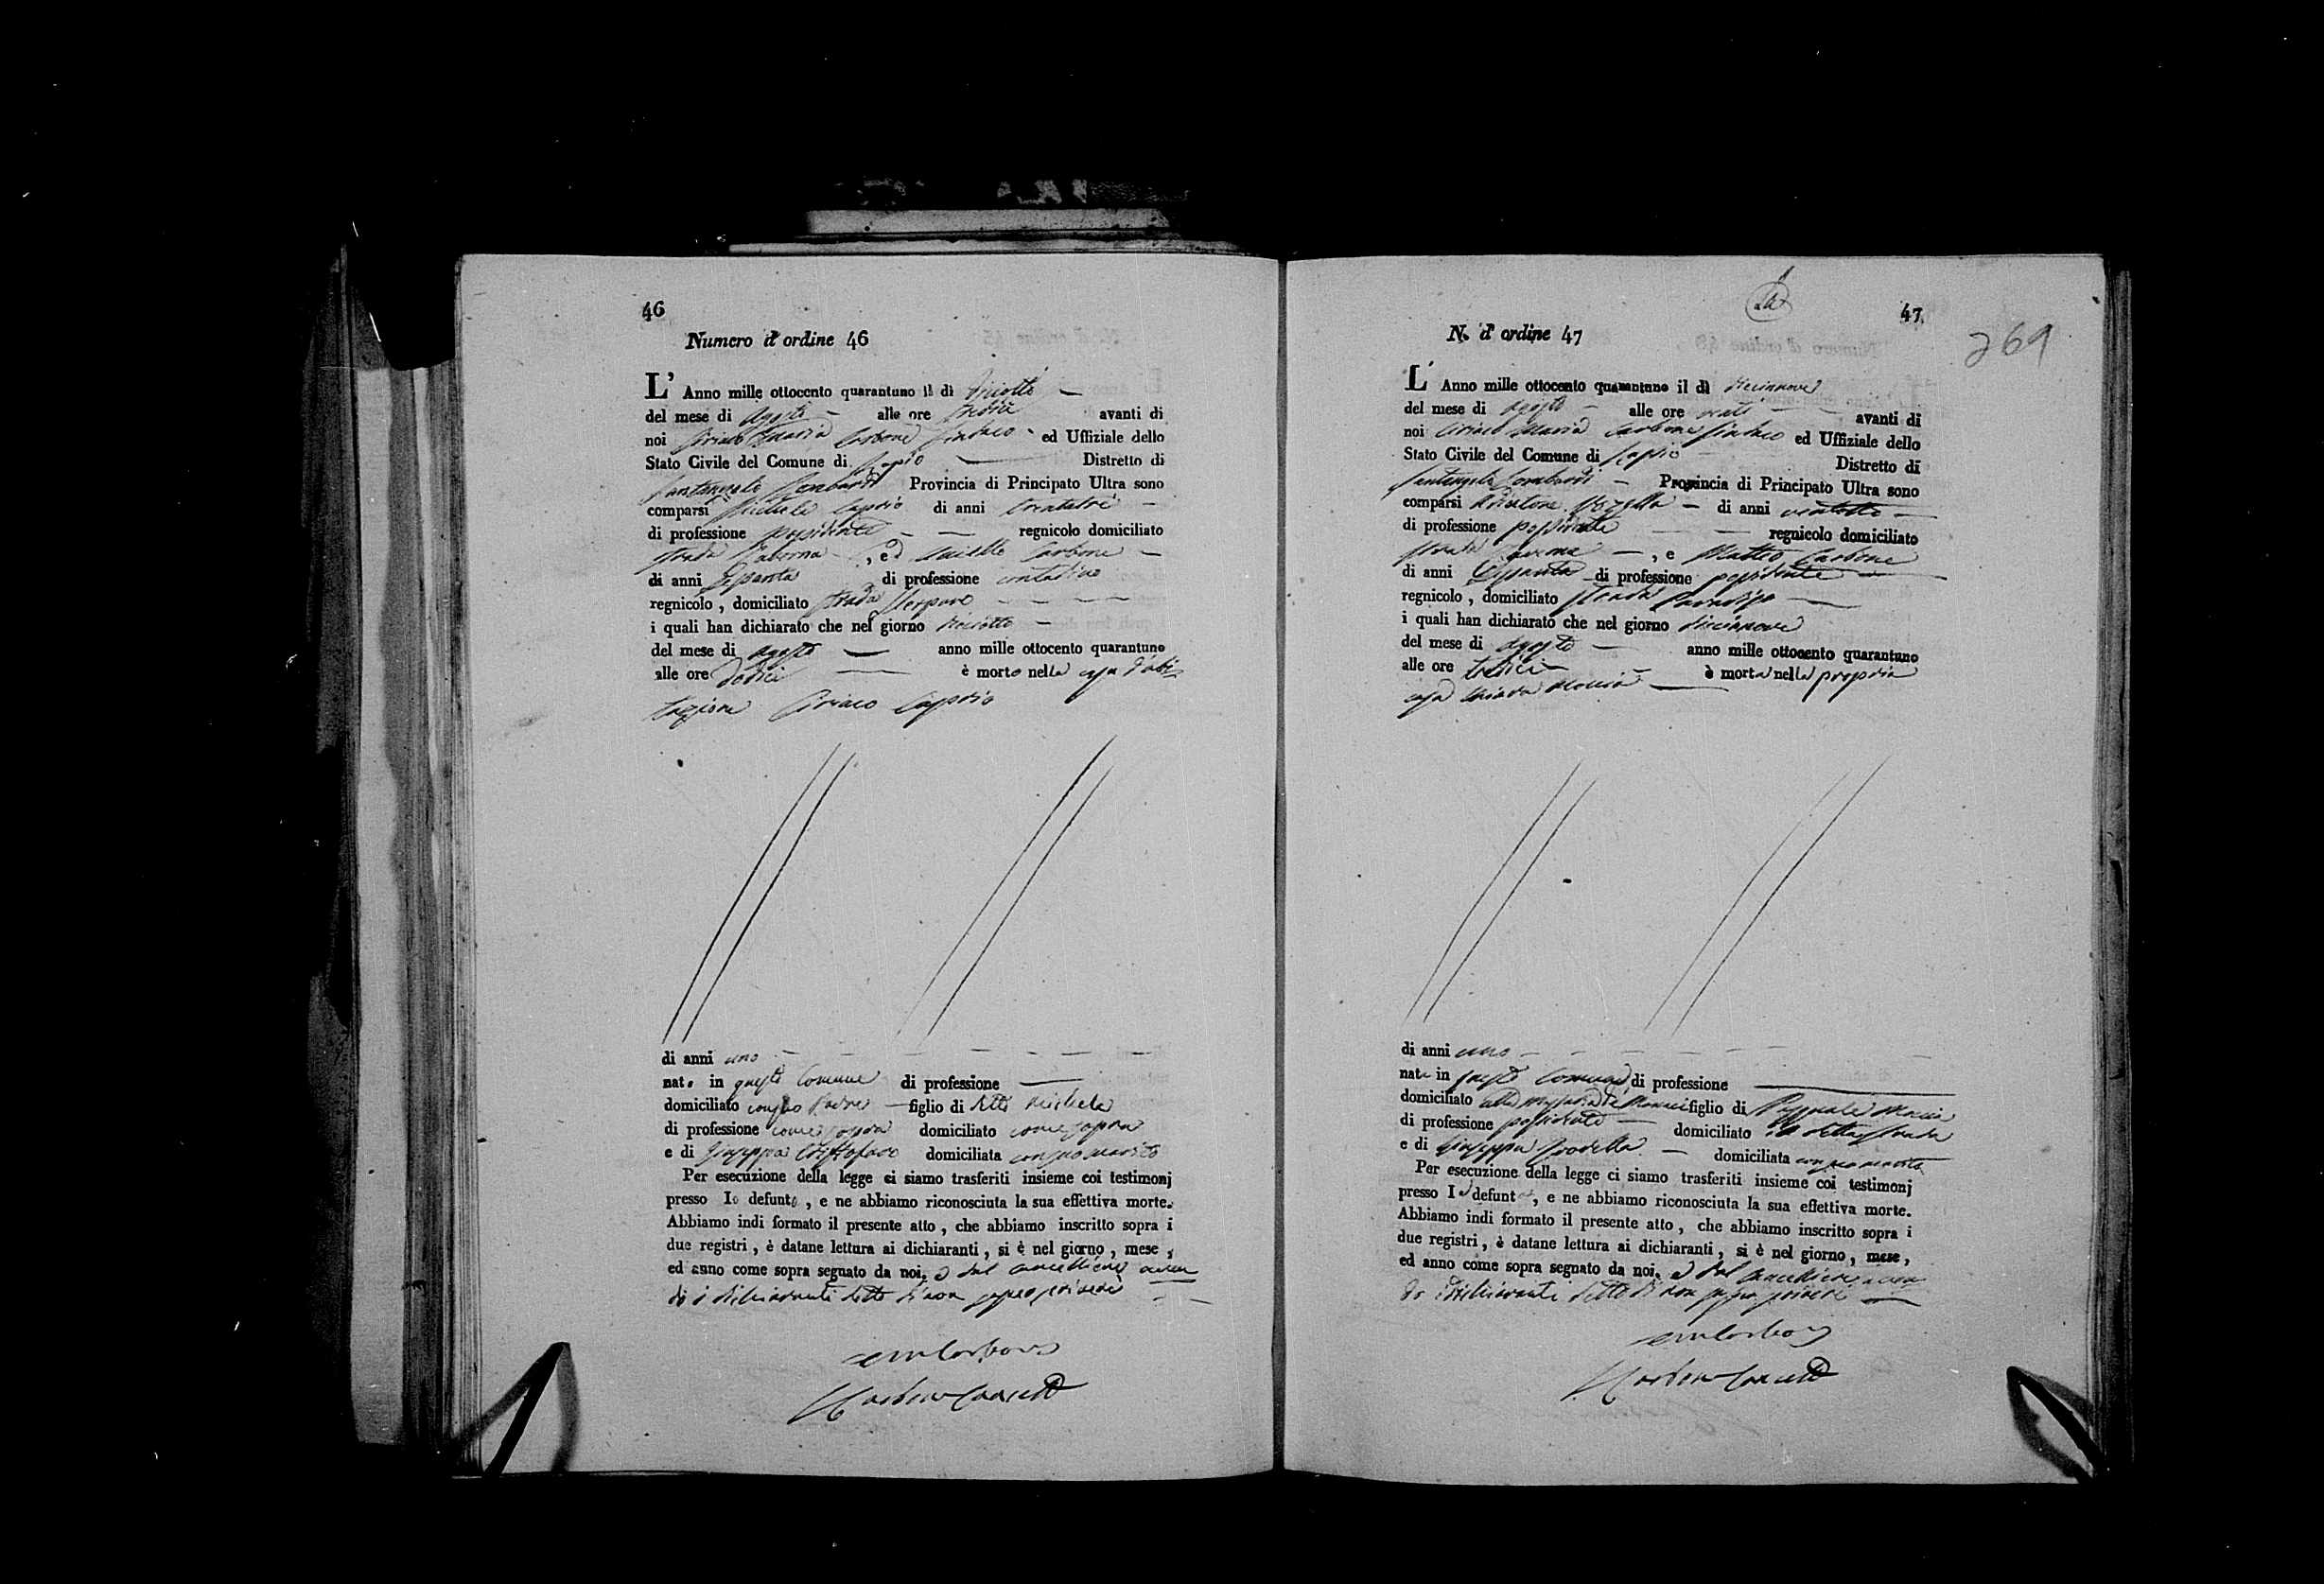 46
Numero d'ordine 46
L' Anno mille ottocento quarantuno il dì diciotto
del mese di Agosto alle ore tredici avanti di
noi Ciriaco Maria Carbone Sindaco ed Uffiziale dello
Stato Civile del Comune di Lapio Distretto di
Santangelo Lombardi Provincia di Principato Ultra sono
comparsi Michele Caprio di anni trentatre
di professione possidente regnicolo domiciliato
strada Taverna, ed Carbone
di anni Sessanta di professione contadino
regnicolo, domiciliato strada
i quali han dichiarato che nel giorno diciotto
del mese di Agosto anno mille ottocento quarantuno
alle ore dodici è morto nella casa d'abi
tazione Ciriaco Caprio
di anni uno
nato in questo Comune di professione
domiciliato con suo Padre figlio di detto Michele
di professione come sopra domiciliato come sopra
e di Giuseppa Cristofaro domiciliata con suo marito
Per esecuzione della legge ci siamo trasferiti insieme coi testimonj
presso lo defunto, e ne abbiamo riconosciuta la sua effettiva morte.
Abbiamo indi formato il presente atto, che abbiamo inscritto sopra i
due registri, è datane lettura ai dichiaranti, si è nel giorno, mese,
ed anno come sopra segnato da noi, e dal cancelliere aven
do i dichiaranti detto di non saper scrivere
CM Carbone
Carbone Canc
47
269
N. d' ordine 47
L' Anno mille ottocento quarantuno il dì diecinnove
del mese di Agosto alle ore avanti di
noi Ciriaco Maria Carbone Sindaco ed Uffiziale dello
Stato Civile del Comune di Lapio Distretto di
Santangelo Lombardi Provincia di Principato Ultra sono
comparsi di anni ventotto
di professione possidente regnicolo domiciliato
strada Taverna, e Matteo Carbone
di anni Sessanta di professione possidente
regnicolo, domiciliato strada Paradiso
i quali han dichiarato che nel giorno diecinnove
del mese di Agosto anno mille ottocento quarantuno
alle ore tredici è morta nella propria
casa Chiara Moccia
di anni uno
nata in questo Comune di professione
domiciliato alla figlio di Pasquale Moccia
di professione possidente domiciliato in detta strada
e di Giuseppa domiciliata con suo marito
Per esecuzione della legge ci siamo trasferiti insieme coi testimonj
presso la defunta, e ne abbiamo riconosciuta la sua effettiva morte.
Abbiamo indi formato il presente atto, che abbiamo inscritto sopra i
due registri, è datane lettura ai dichiaranti, si è nel giorno, mese,
ed anno come sopra segnato da noi, e dal Cancelliere aven
do i dichiaranti detto di non saper scrivere
CM Carbone
Carbone Canc